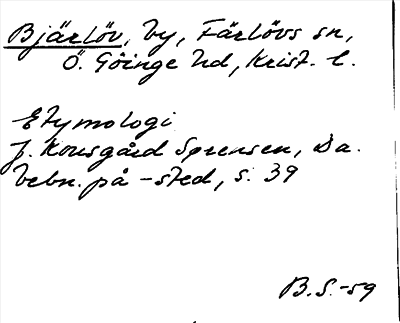 Bjärlöv, by, Färlövs sn,
Ö. Göinge hd, Krist. l.
Etymologi
J. Kousgård Sørensen, Da.
bebn. på -sted, s. 39
B.S.-59